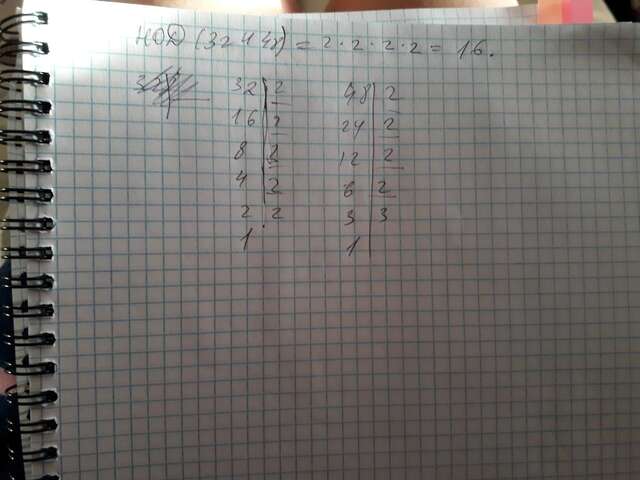 НОД (32 и 48) = 2 · 2 · 2 · 2 = 16.
32 | 2 48 | 2
16 | 2 24 | 2
8 | 2 12 | 2
4 | 2 6 | 2
2 | 2 3 | 3
1 | 1 |